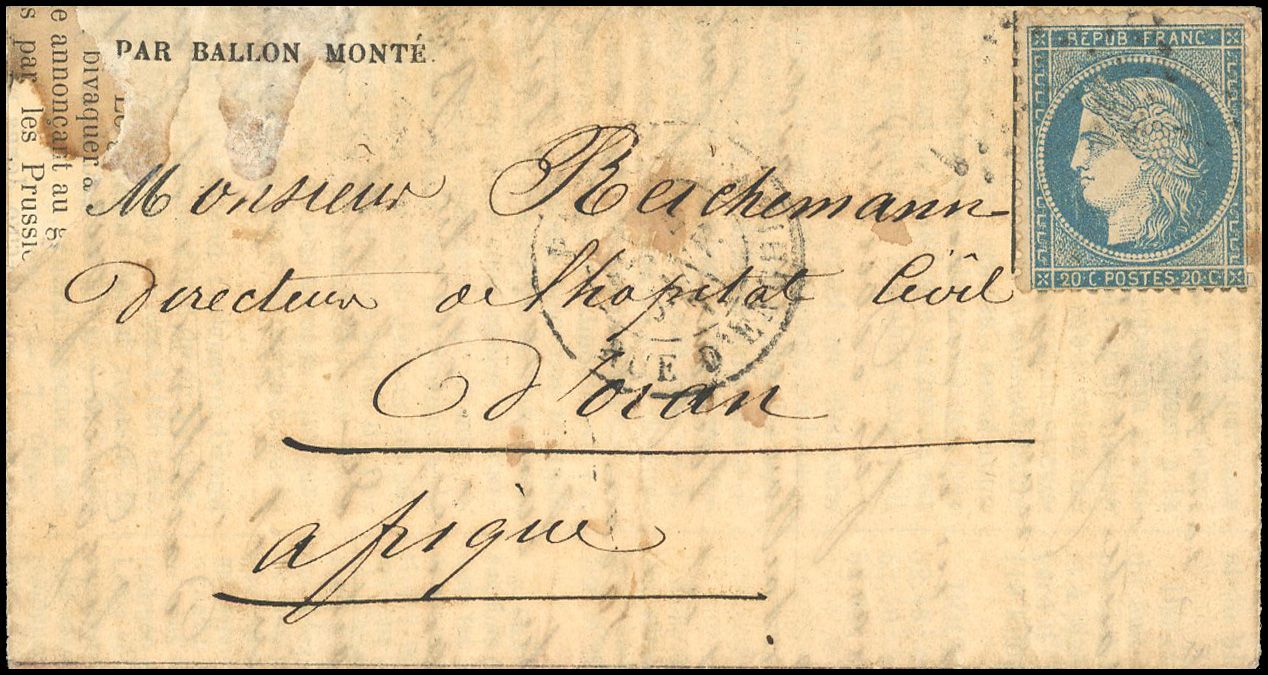 PAR BALLON MONTÉ.
bivaquer
e annonçant au g
s par les Prussie
REPUB. FRANC.
20·C POSTES·20·C
Monsieur Reichemann
Directeur de l'hopital Civil
d'oran
afrique
RUE D'E